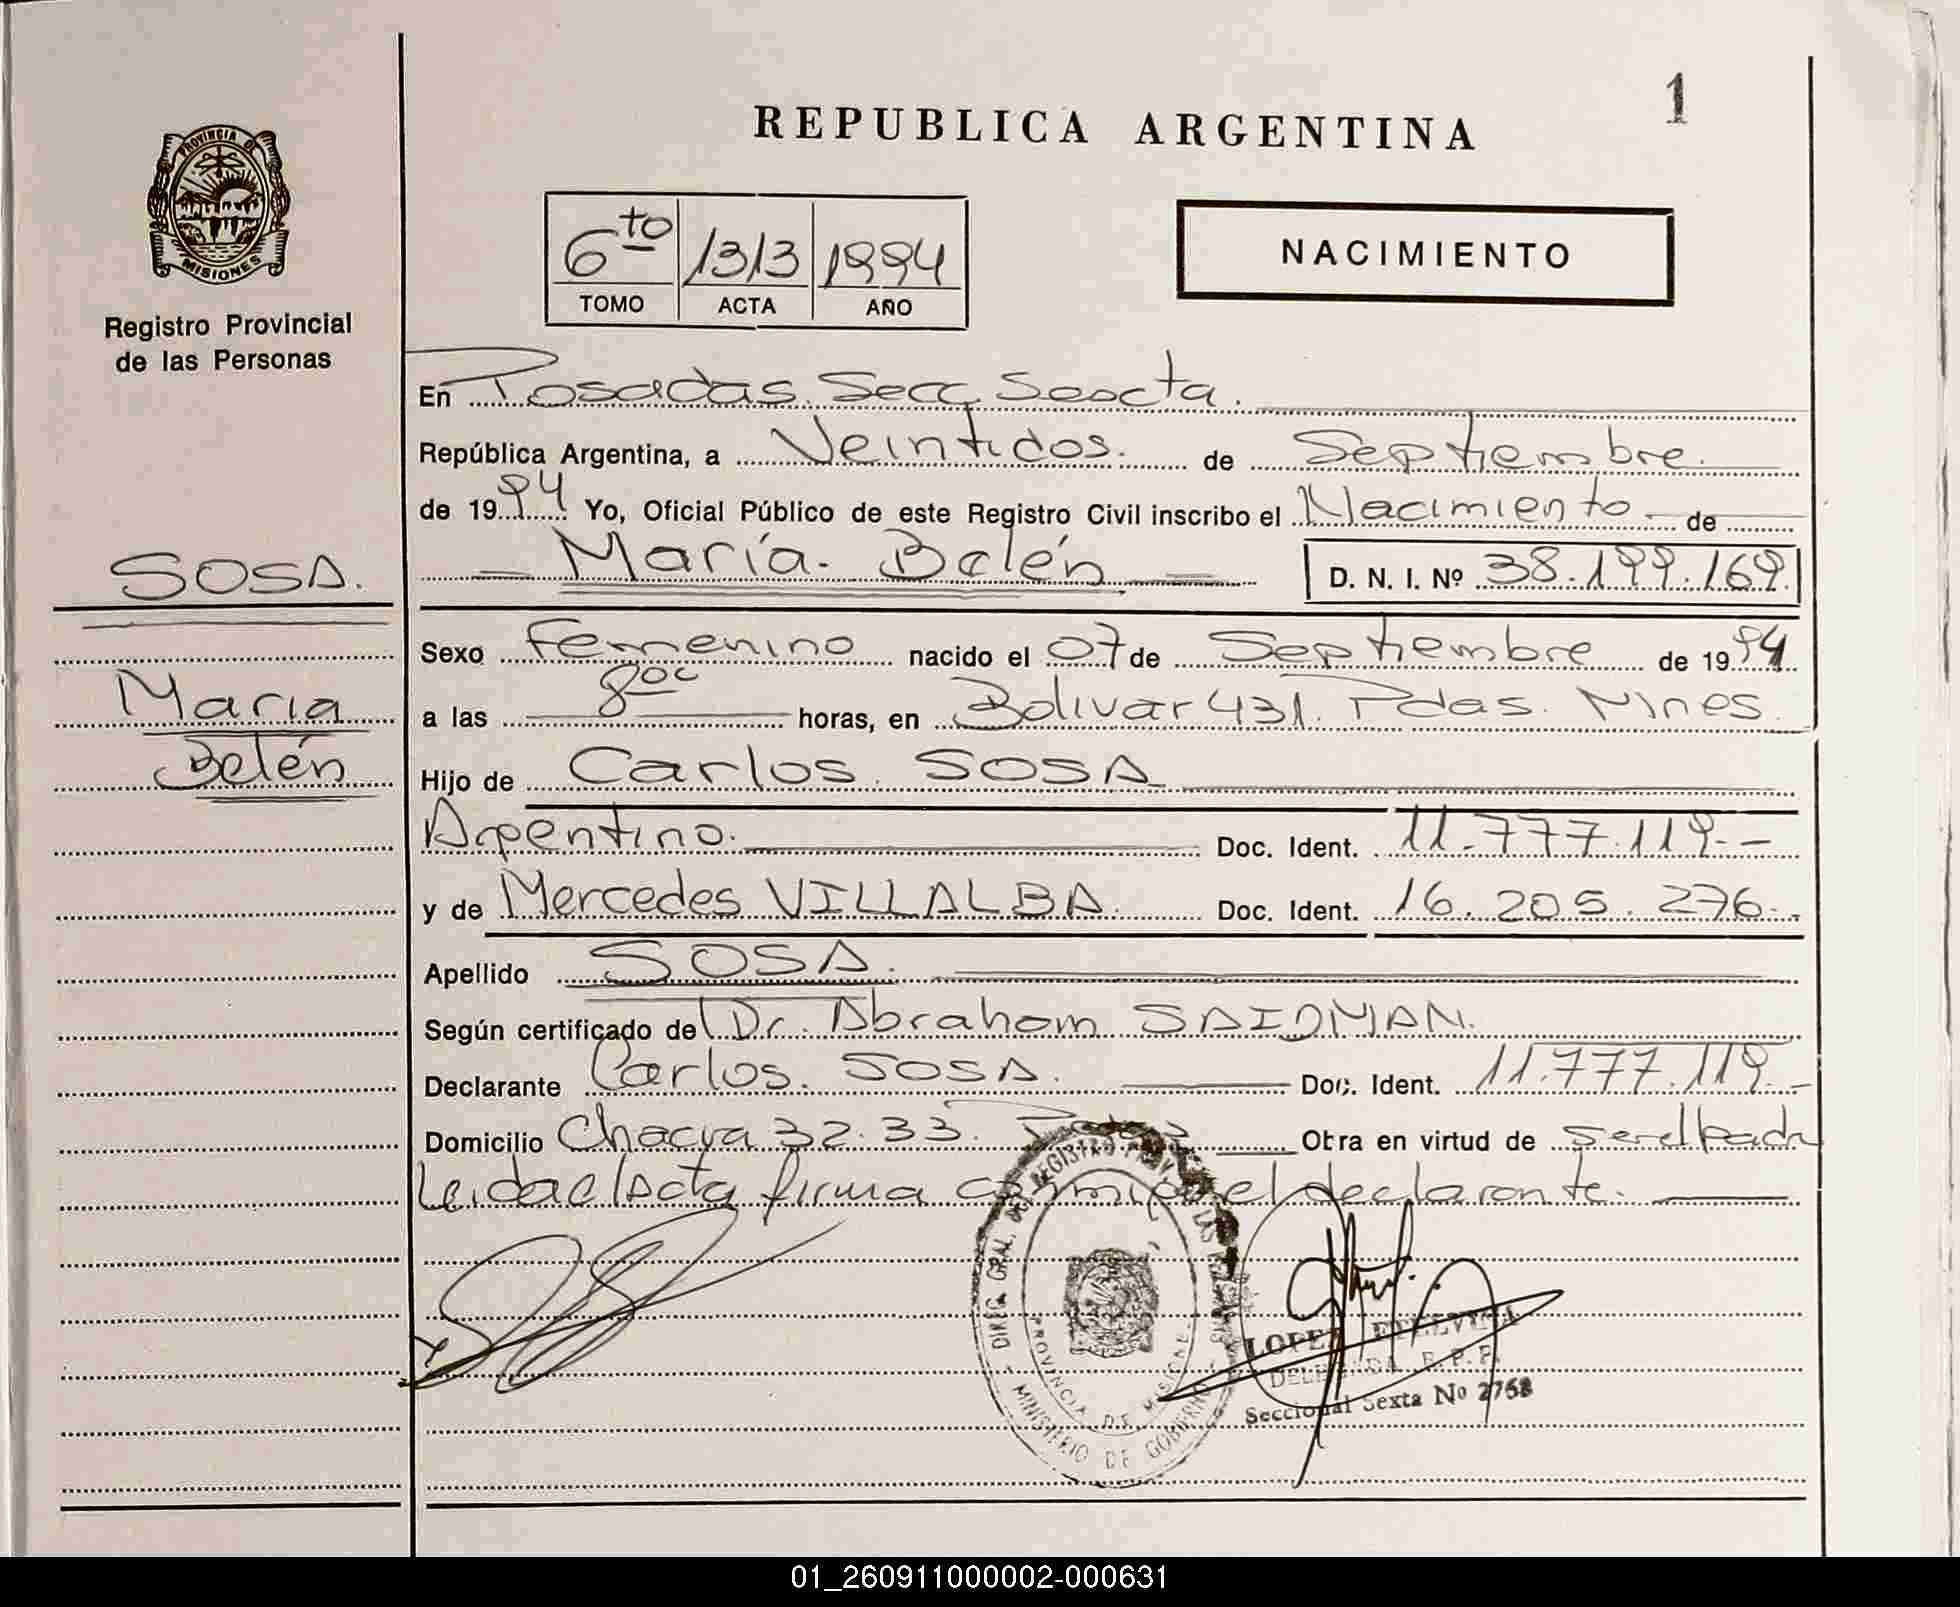 1
REPUBLICA ARGENTINA
PROVINCIA DE
MISIONES
Registro Provincial
de las Personas
6to 1313 1994
TOMO ACTA AÑO
NACIMIENTO
En Posadas. Secc Sexta.
República Argentina, a Veintidos. de Septiembre.
de 1994 Yo, Oficial Público de este Registro Civil inscribo el Nacimiento de
María. Belén D. N. I. Nº 38.199.169.
SOSA.
Sexo Femenino nacido el 07 de Septiembre de 1994
María
a las 8oo horas, en Bolivar 431. Pdas. Mnes.
Belén
Hijo de Carlos. SOSA
Argentino. Doc. Ident. 11.777.119.-
y de Mercedes VILLALBA. Doc. Ident. 16.205.276.-
Apellido SOSA.
Según certificado de Dr. Abraham SAIDMAN.
Declarante Carlos. SOSA. Doc. Ident. 11.777.119.-
Domicilio Chacra 32.33. Otra en virtud de ser el padre
Leida el Acta firma conmigo el declarante.
DIREC. GRAL. DEL REGISTRO PROV. DE LAS
PROVINCIA DE MISIONES
MINISTERIO DE GOBIERNO
LOPEZ ETELVINA
DELEGADA R. P. P.
Seccional Sexta No 2768
01_260911000002-000631